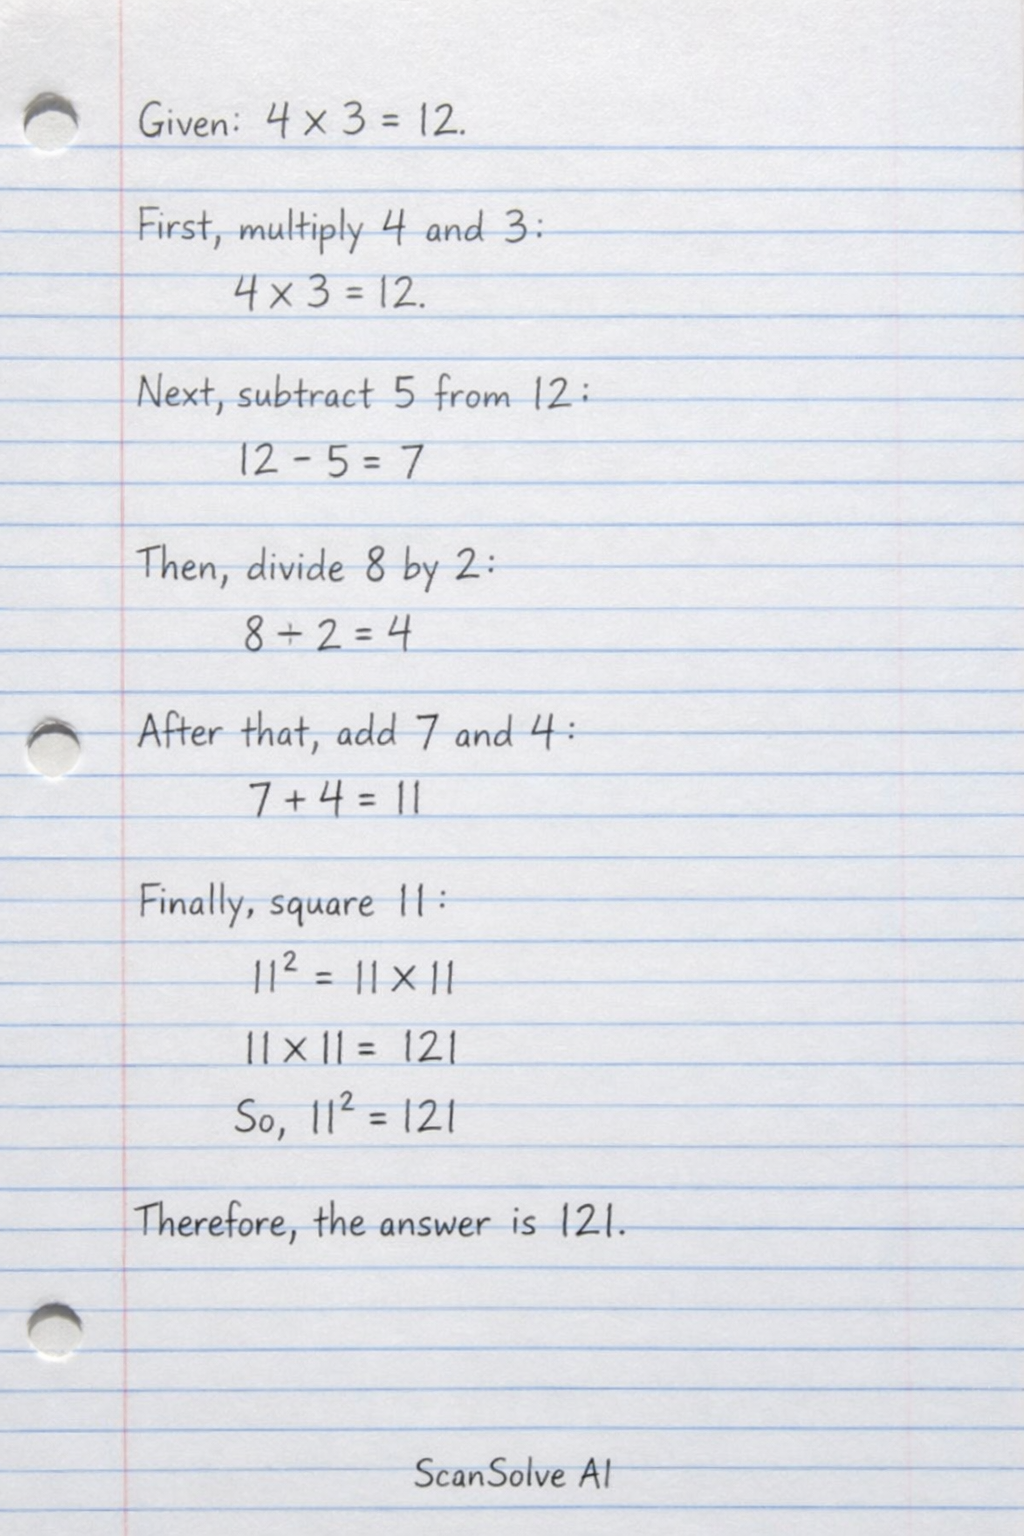 Given: 4 × 3 = 12.
First, multiply 4 and 3:
4 × 3 = 12.
Next, subtract 5 from 12:
12 - 5 = 7
Then, divide 8 by 2:
8 ÷ 2 = 4
After that, add 7 and 4:
7 + 4 = 11
Finally, square 11:
11² = 11 × 11
11 × 11 = 121
So, 11² = 121
Therefore, the answer is 121.
ScanSolve AI